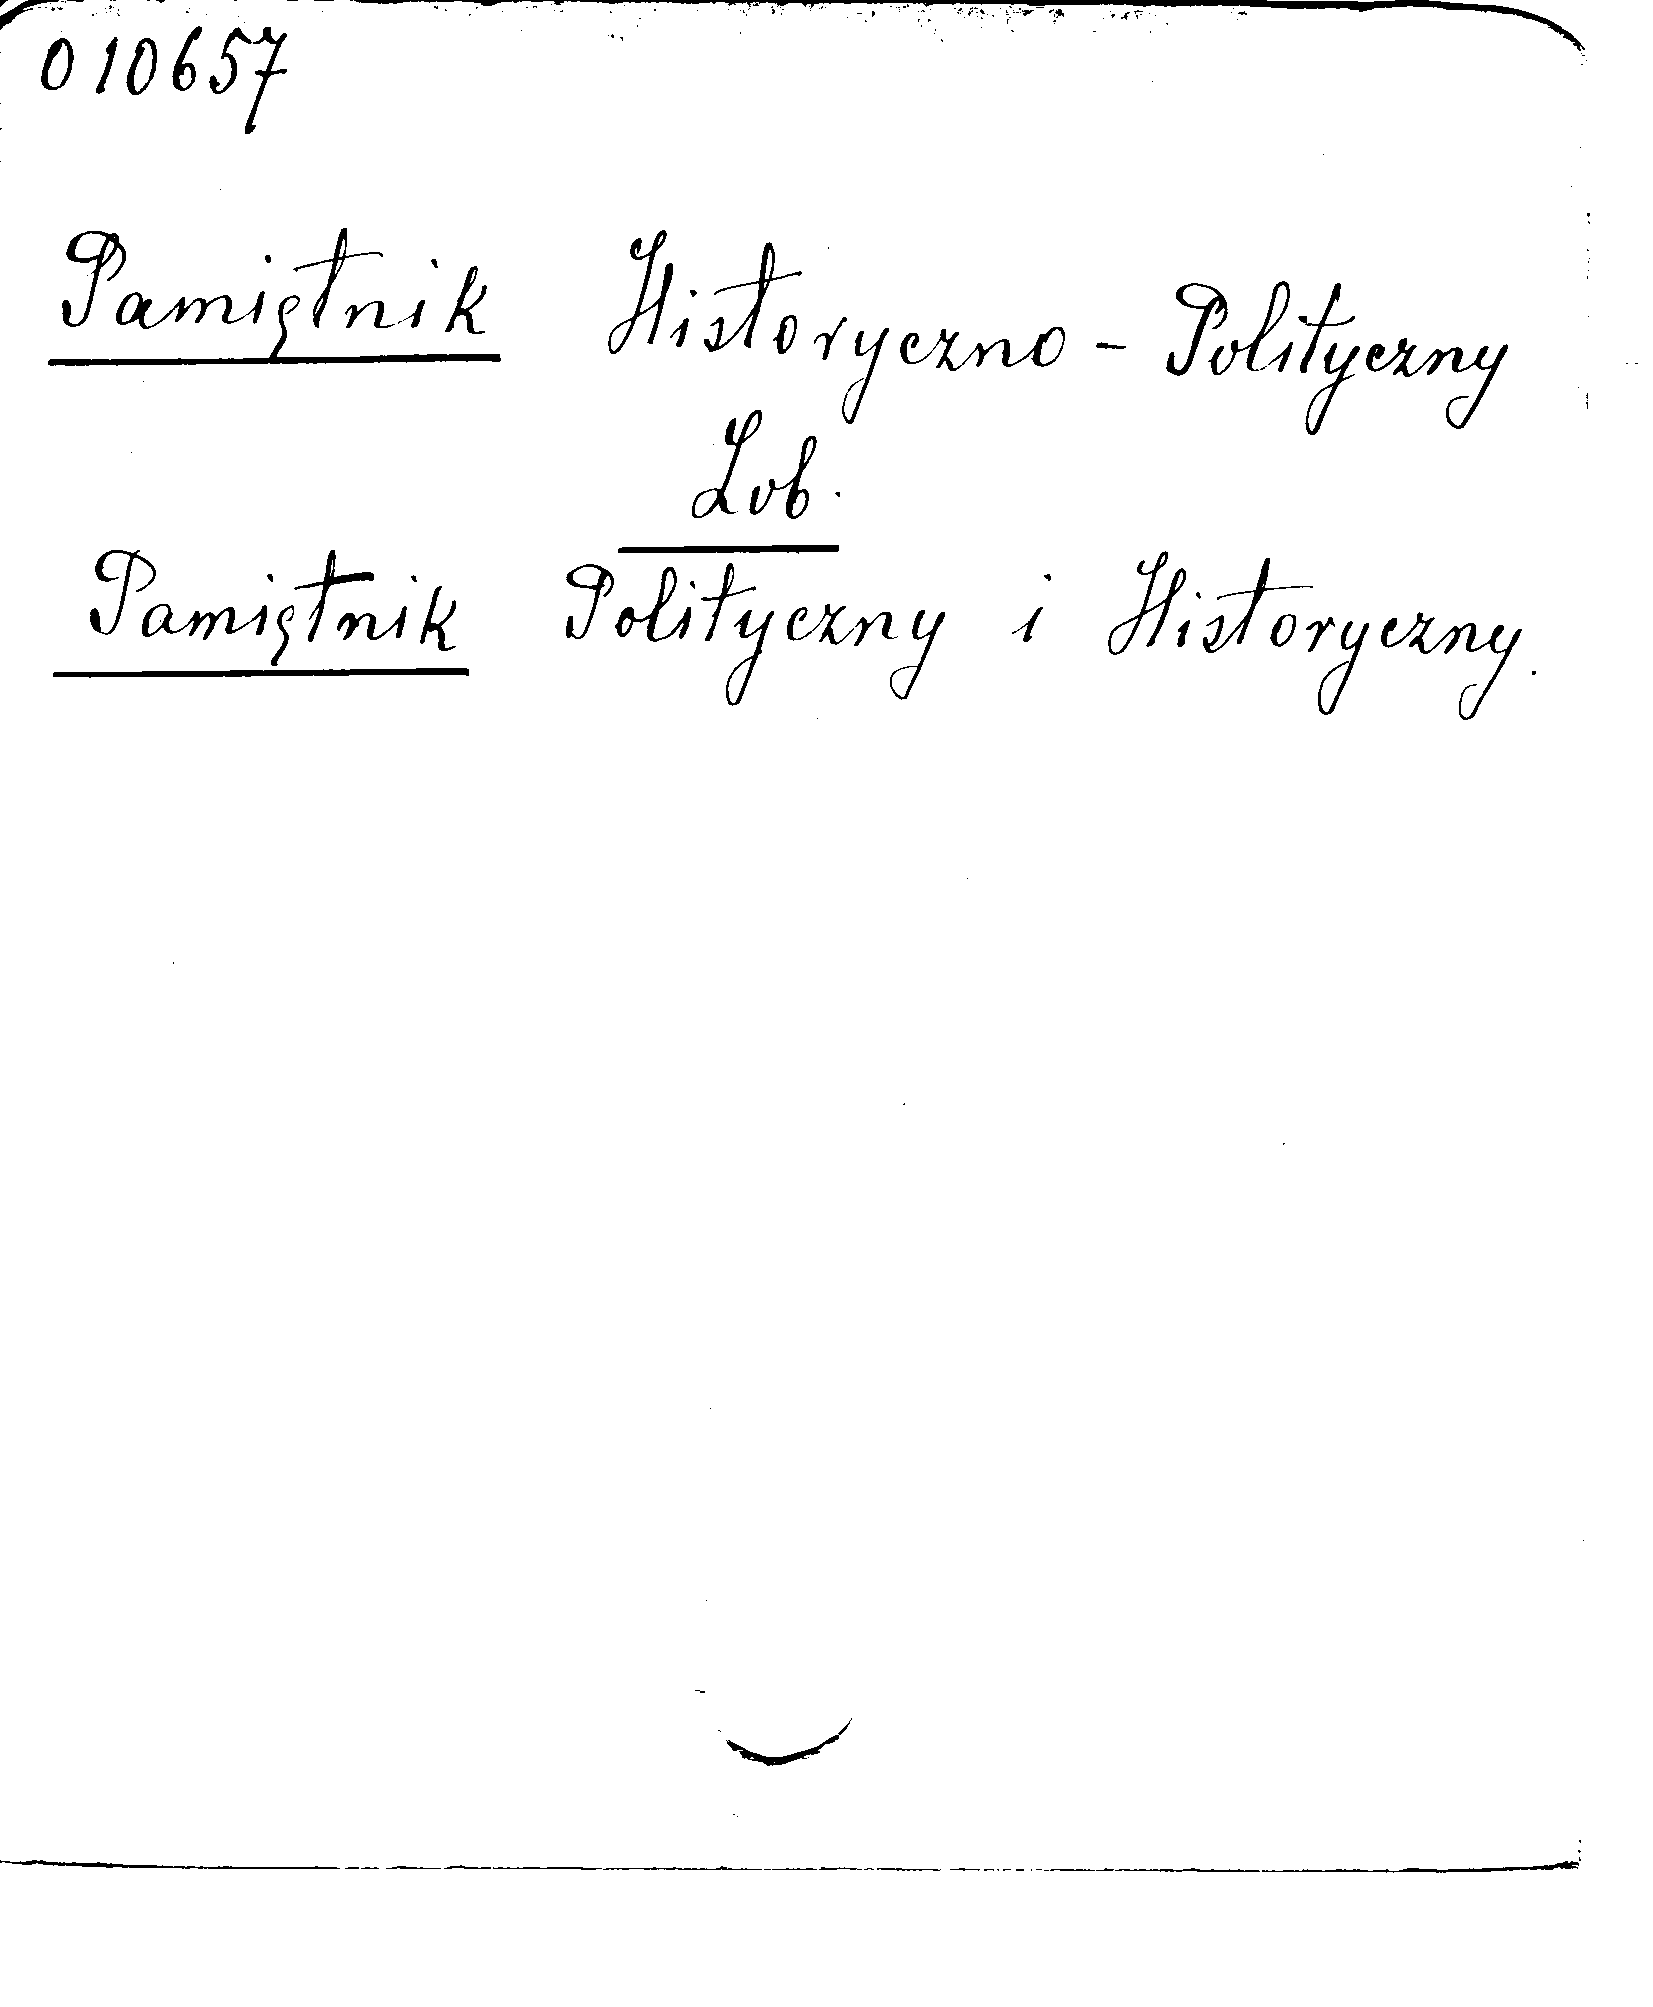 010657
Pamiętnik Historyczno - Polityczny
Zob.
Pamiętnik Polityczny i Historyczny.